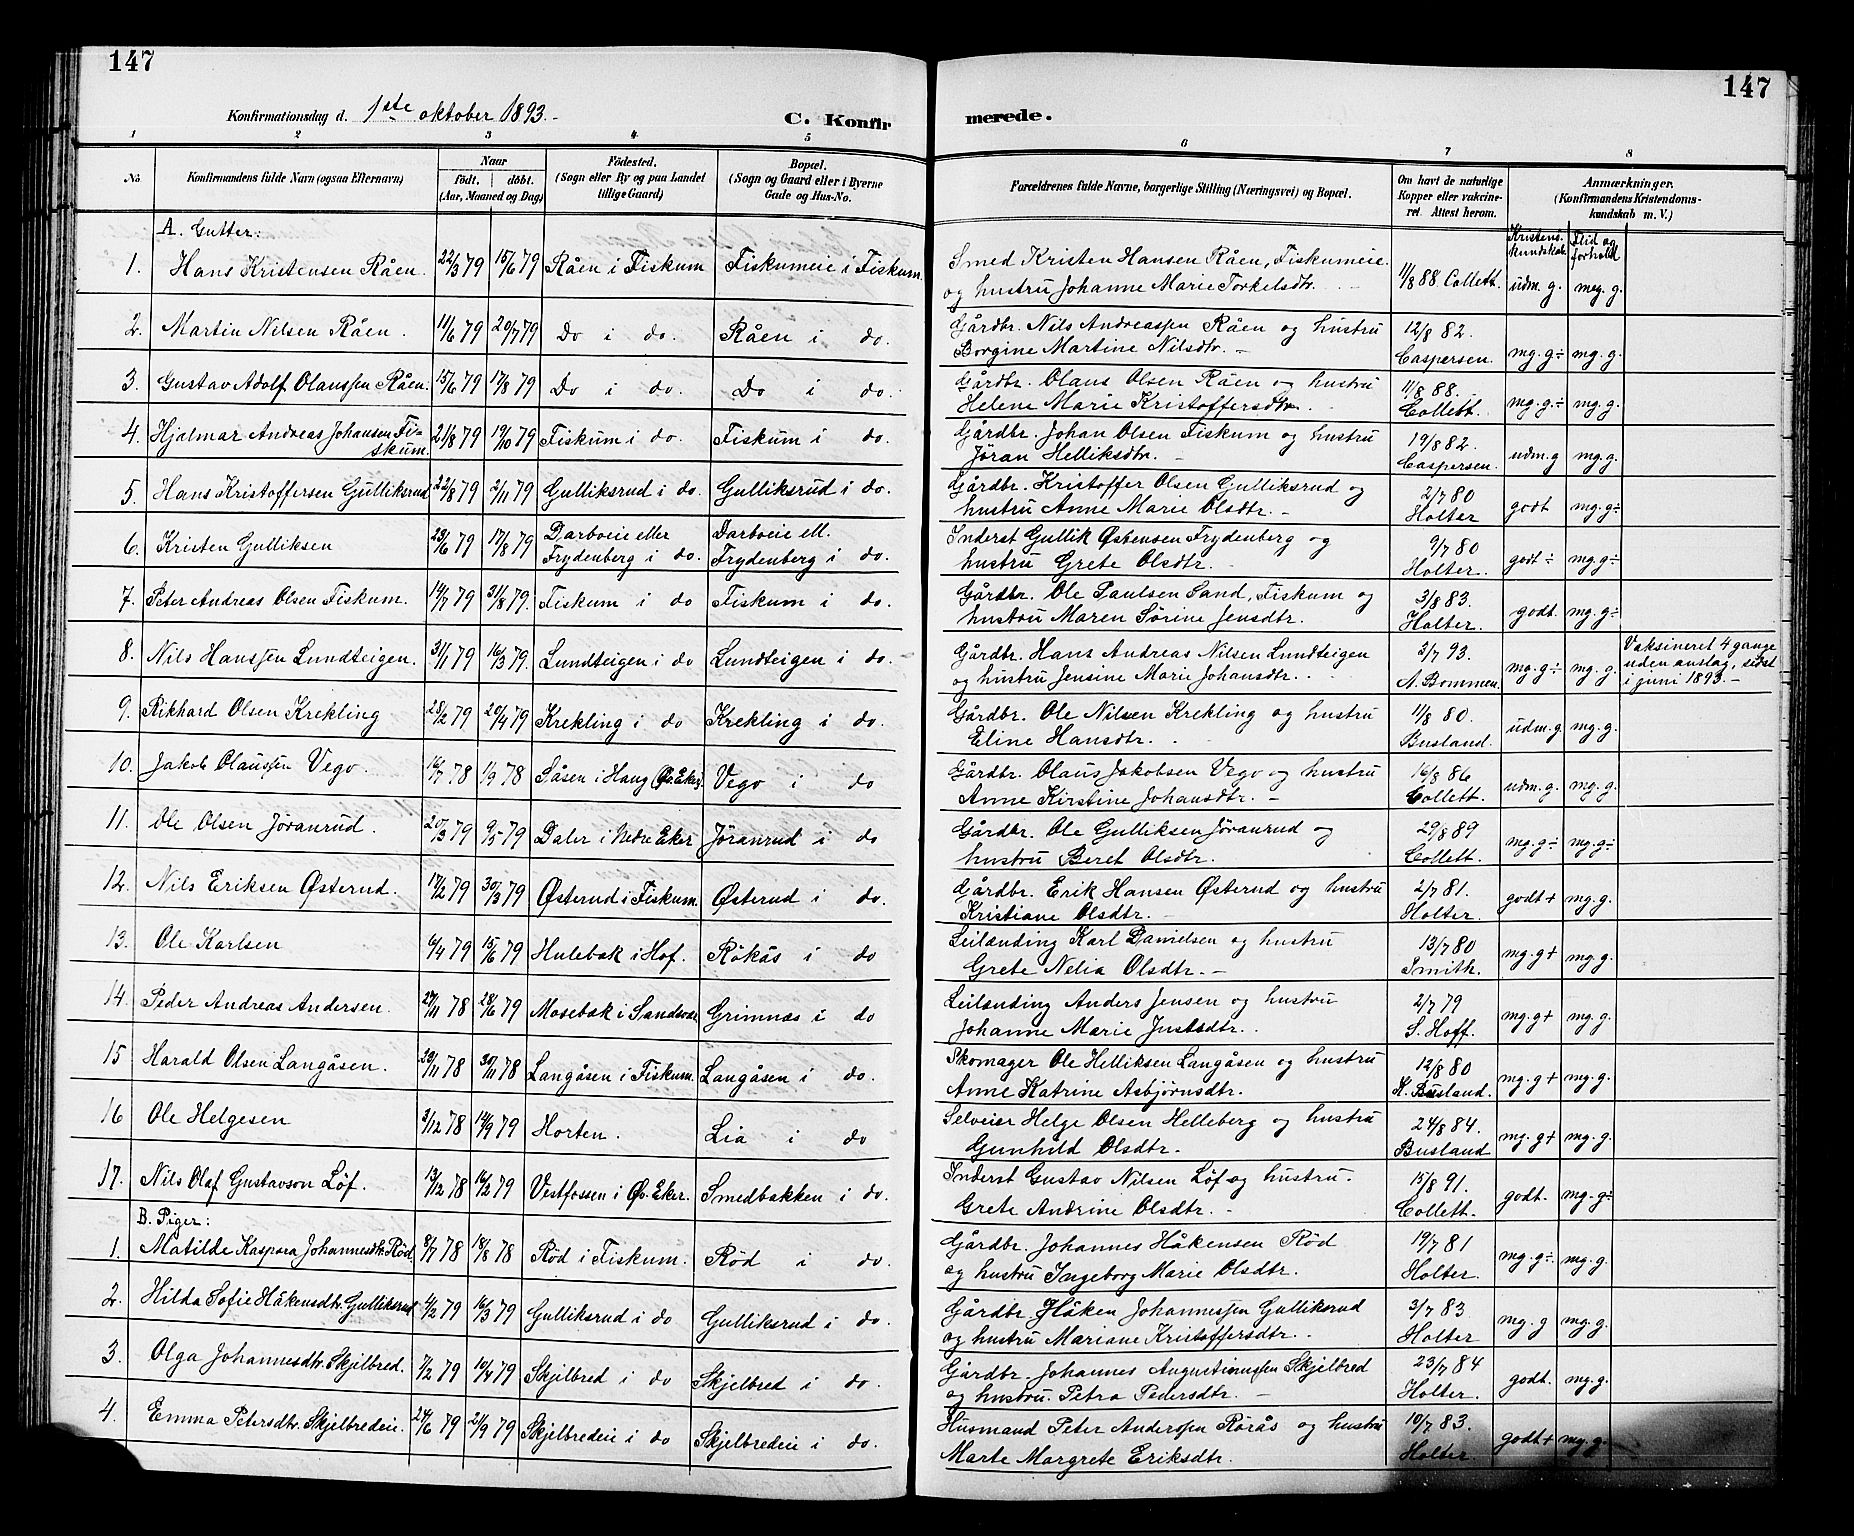 147
147
Konfirmationsdag d. 1ste oktober 1893.-
C. Konfir
merede.
1 2 3 4 5 6 7 8
No. Konfirmandens fulde Navn (ogsaa Efternavn) Naar født. døbt. (Aar, Maaned og Dag) Födested. (Sogn eller By og paa Landet tillige Gaard) Bopæl. (Sogn og Gaard eller i Byerne Gade og Hus-No. Forældrenes fulde Navne, borgerlige Stilling (Næringsvei) og Bopæl. Om havt de naturlige Kopper eller vakcineret. Attest herom. Anmærkninger. (Konfirmandens Kristendomskundskab m. V.)
A. Gutter: Kristens. kundskab. Flid og forhold
1. Hans Kristensen Råen. 22/3 79 15/6 79 Råen i Fiskum Fiskumeie i Fiskum. Smed Kristen Hansen Råen, Fiskumeie og hustru Johanne Marie Torkelsdtr. 11/8 88 Collett. udm. g. meg. g.
2. Martin Nilsen Råen. 11/6 79 20/7 79 Do i do. Råen i do. Gårdbr. Nils Andreassen Råen og hustru Borgine Martine Nilsdtr. - 12/8 82. Caspersen. mg. g÷ mg. g.
3. Gustav Adolf Olaussen Råen. 15/6 79 17/8 79 Do i do. Do i do. Gårdbr. Olaus Olsen Råen og hustru Helene Marie Kristoffersdtr. 11/8 88. Collett. mg. g.÷ mg. g.
4. Hjalmar Andreas Johansen Fiskum. 21/8 79 19/10 79 Fiskum i do. Fiskum i do. Gårdbr. Johan Olsen Fiskum og hustru Jöran Helliksdtr. - 19/8 82. Caspersen. udm. g mg. g.
5. Hans Kristoffersen Gulliksrud 22/8 79 2/11 79 Gulliksrud i do. Gulliksrud i do. Gårdbr. Kristoffer Olsen Gulliksrud og hustru Anne Marie Olsdtr. - 2/7 80 Holter godt mg. g÷
6. Kristen Gulliksen 23/6 79 17/8 79 Darboeie eller Frydenberg i do. Darboeie ell. Frydenberg i do. Inderst Gullik Østensen Frydenberg og hustru Grete Olsdtr. 9/7 80 Holter. godt÷ mg. g÷
7. Peter Andreas Olsen Fiskum. 14/7 79 31/8 79. Fiskum i do Fiskum i do. Gårdbr. Ole Paulsen Sand, Fiskum og hustru Maren Sørine Jensdtr. 3/8 83. Holter. godt. mg. g÷
8. Nils Hanssen Lundteigen. 31/1 79 16/3 79. Lundteigen i do Lundteigen i do. Gårdbr. Hans Andreas Nilsen Lundteigen og hustru Jensine Marie Johansdtr. 3/7 93. A. Bommen. mg. g÷ mg. g. Vaksineret 4 gange uden anslag, sidst i juni 1893.-
9. Rikhard Olsen Krekling 28/2 79 20/4 79 Krekling i do Krekling i do. Gårdbr. Ole Nilsen Krekling og hustru Eline Hansdtr. 11/8 80. Busland. udm. g. mg. g.
10. Jakob Olaussen Vego. 16/7 78 1/9 78 Såsen i Haug (Øv. Eker) Vego i do Gårdbr. Olaus Jakobsen Vego og hustru Anne Kirstine Johansdtr. - 16/8 86 Collett. udm. g. mg. g.
11. Ole Olsen Jöranrud. 20/3 79 9/5 79 Daler i Nedre Eker Jöranrud i do Gårdbr. Ole Gulliksen Jöranrud og hustru Beret Olsdtr. 29/8 89 Collett. mg. g÷ mg. g÷
12. Nils Eriksen Østerud. 17/2 79 30/3 79 Østerud i Fiskum. Østerud i do. Gårdbr. Erik Hansen Østerud og hustru Kristiane Olsdtr. - 2/7 81. Holter. godt+ mg. g.
13. Ole Karlsen 6/4 79 15/6 79 Hulebak i Hof. Rökås i do Leilænding Karl Danielsen og hustru Grete Nelia Olsdtr. - 13/7 80 Smith. mg. g+ mg. g.
14. Peder Andreas Andersen. 27/11 78 28/6 79 Mosebak i Sandsvær Grimnæs i do Leilænding Anders Jensen og hustru Johanne Marie Justsdtr. 2/7 79 S. Hoff. mg. g+ mg. g.
15 Harald Olsen Langåsen. 29/11 78 30/11 78 Langåsen i Fiskum. Langåsen i do. Skomager Ole Helliksen Langåsen og hustru Anne Katrine Asbjørnsdtr. 12/8 80 K. Busland. mg. g+ mg. g.
16 Ole Helgesen 3/12 78 14/9 79 Horten. Lia i do Selveier Helge Olsen Helleberg og hustru Gunhild Olsdtr. 24/8 84. Busland mg. g+ mg. g.
17. Nils Olaf Gustavson Löf. 13/12 78 16/2 79 Vestfossen i Øv. Eker. Smedbakken i do. Inderst Gustav Nilsen Löf og hustru. Grete Andrine Olsdtr. - 15/8 91. Collett. godt. mg. g÷
B. Piger:
1. Matilde Kaspara Johannesdtr. Röd. 8/7 78 18/8 78 Röd i Fiskum. Röd i do. Gårdbr. Johannes Håkensen Röd og hustru Ingeborg Marie Olsdtr. 19/7 81 Holter. mg. g÷ mg. g.
2. Hilda Sofie Håkensdtr. Gulliksrud 4/2 79 16/3 79 Gulliksrud i do Gulliksrud i do. Gårdbr Håken Johannessen Gulliksrud og hustru Mariane Kristoffersdtr. 3/7 83 Holter mg. g mg. g.
3. Olga Johannesdtr. Skjelbred. 7/2 79 10/4 79 Skjelbred i do Skjelbred i do. Gårdbr Johannes Augustinussen Skjelbred og hustru. Petra Pedersdtr. - 23/7 84 Holter. godt. mg. g.
4. Emma Petersdtr. Skjelbredeie. 24/6 79 21/9 79 Skjelbredeie i do Skjelbredeie i do. Husmand Peter Anderssen Rörås og hustru Marte Margrete Eriksdtr. 10/7 83. Holter. godt+ mg. g.